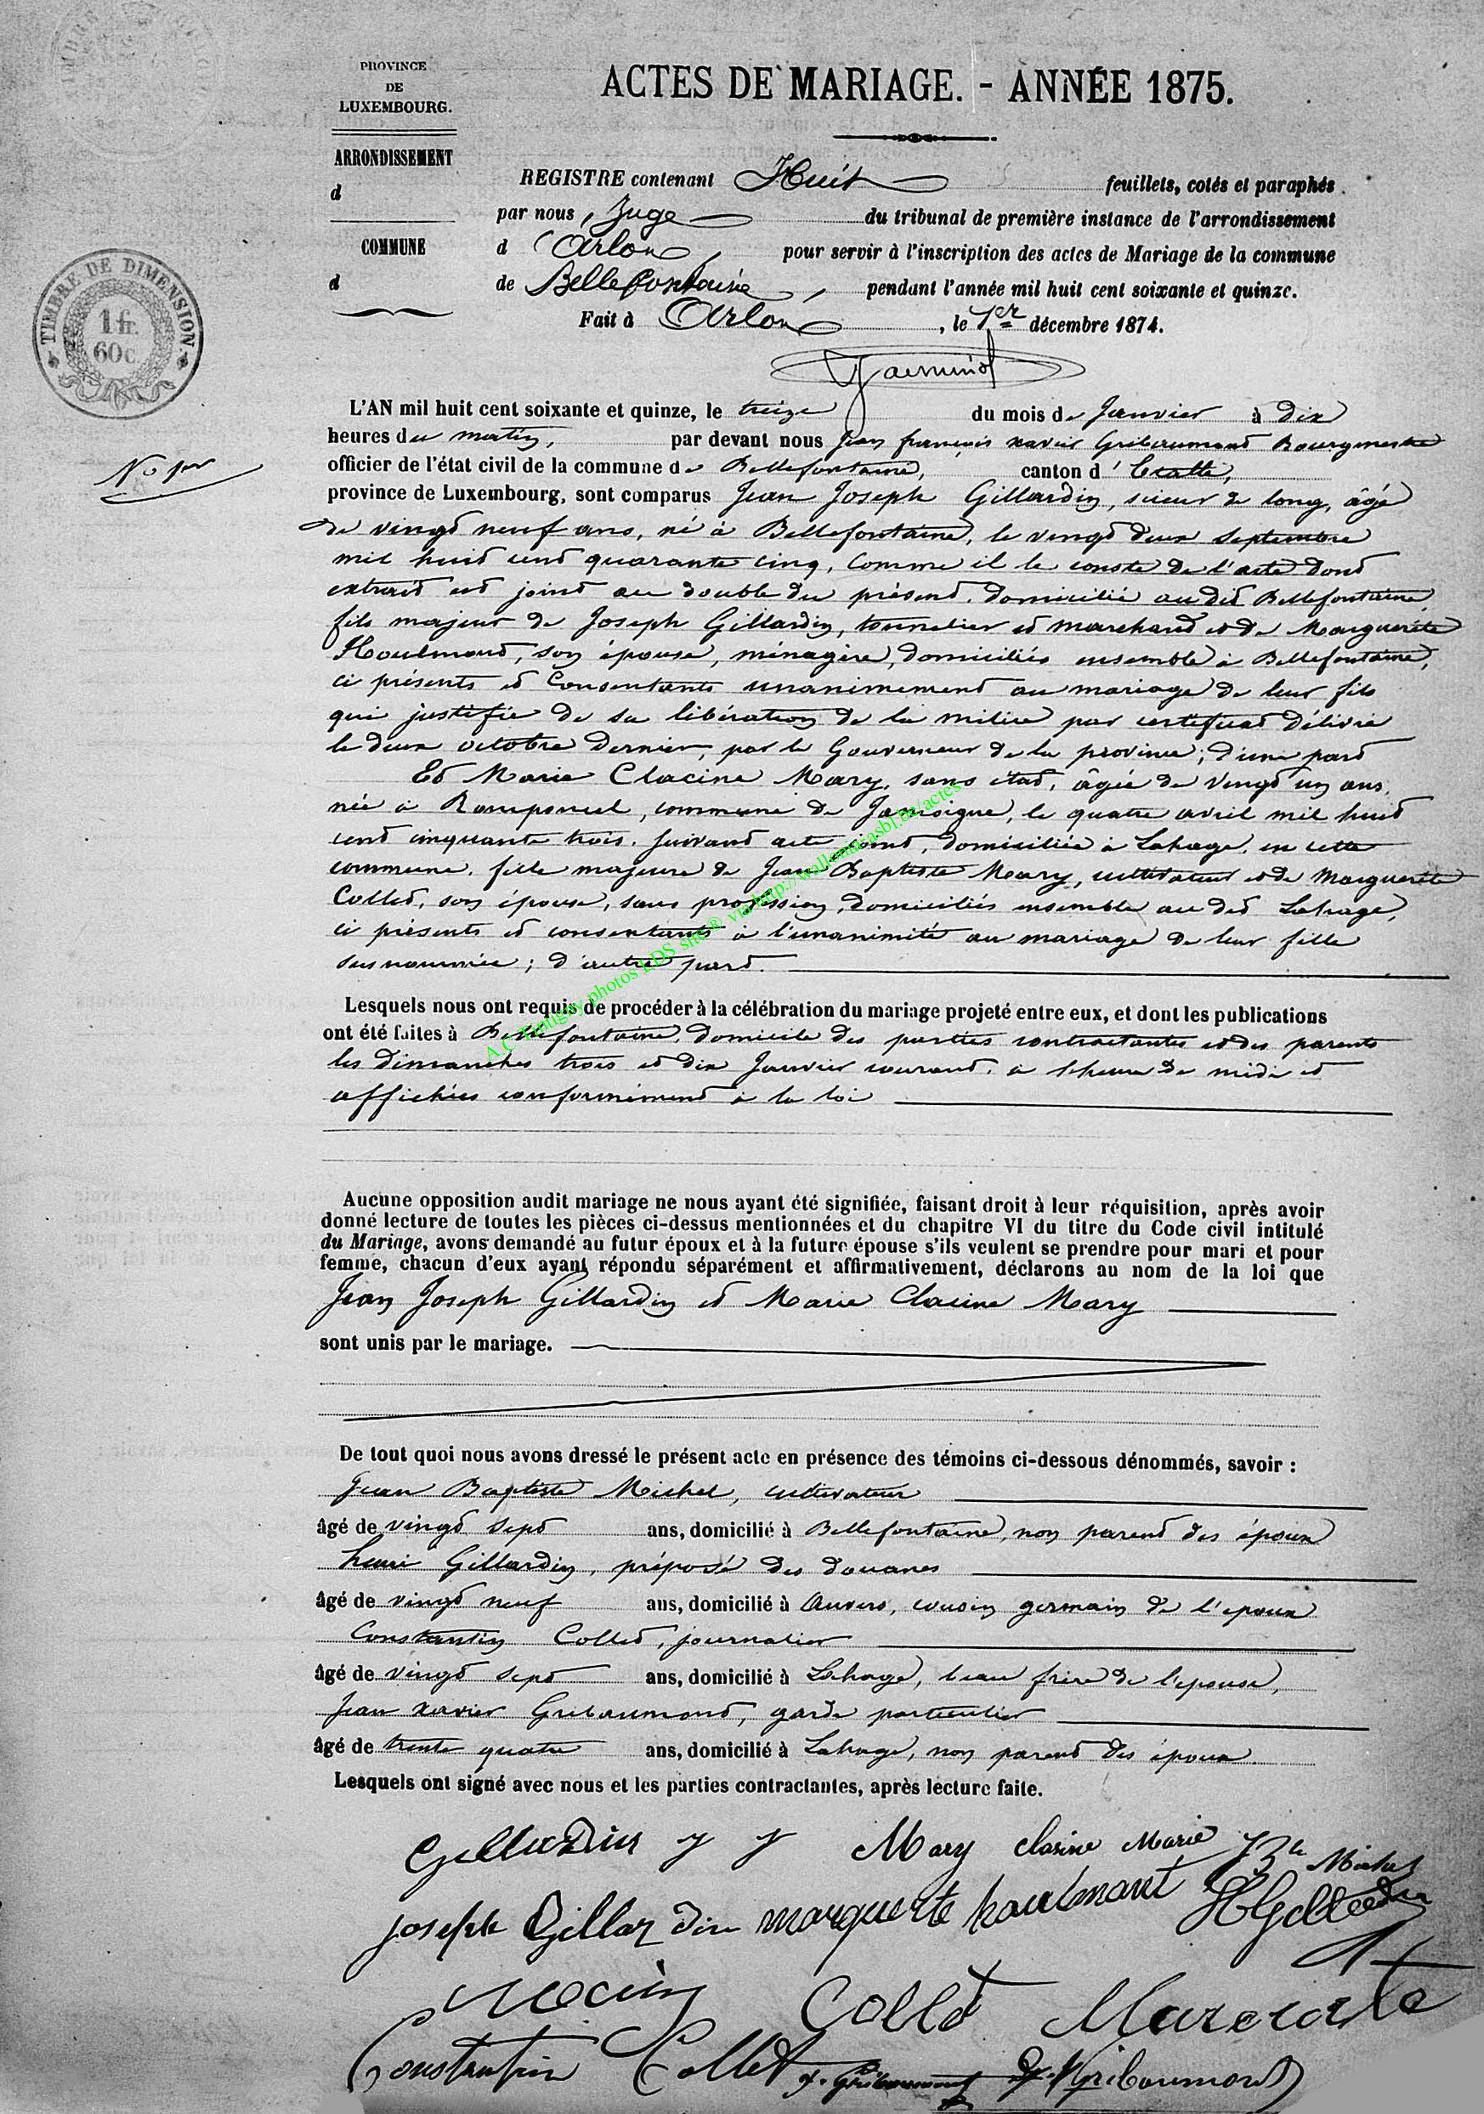 PROVINCE
DE
LUXEMBOURG.
ARRONDISSEMENT
d
COMMUNE
d
TIMBRE DE DIMENSION
1 fr.
60 c.
ACTES DE MARIAGE. - ANNÉE 1875.
REGISTRE contenant Huit feuillets, cotés et paraphés
par nous, Juge du tribunal de première instance de l'arrondissement
d'Arlon, pour servir à l'inscription des actes de Mariage de la commune
de Bellefontaine, pendant l'année mil huit cent soixante et quinze.
Fait à Arlon, le 1er décembre 1874.
No 1er
L'AN mil huit cent soixante et quinze, le treize du mois de Janvier à dix
heures du matin, par devant nous Jean françois xavier Gribaumont Bourgmestre
officier de l'état civil de la commune de Bellefontaine, canton d'Etalle,
province de Luxembourg, sont comparus Jean Joseph Gillardin, scieur de long, âgé
de vingt neuf ans, né à Bellefontaine, le vingt deux septembre
mil huit cent quarante cinq, comme il le conste de l'acte dont
extrait est joint au double du présent, domicilié au dit Bellefontaine
fils majeur de Joseph Gillardin, tonnelier et marchand et de Marguerite
Houlmont, son épouse, ménagère, domiciliés ensemble à Bellefontaine,
ci présents et consentants unanimement au mariage de leur fils
qui justifie de sa libération de la milice par certificat délivré
le deux octobre dernier, par le Gouverneur de la province; d'une part
Et Marie Clacine Mary, sans état, âgée de vingt un ans,
née à Romponcel, commune de Jamoigne, le quatre avril mil huit
cent cinquante trois, suivant acte joint, domiciliée à Lahage, en cette
commune, fille majeure de Jean Baptiste Mary, cultivateur et de Marguerite
Collet, son épouse, sans profession, domiciliés ensemble au dit Lahage,
ci présents et consentants à l'unanimité au mariage de leur fille
susnommée; d'autre part.
A.C Tintigny photos LDS site® via http://wallonia.asbl.be/actes
Lesquels nous ont requis de procéder à la célébration du mariage projeté entre eux, et dont les publications
ont été faites à Bellefontaine, domicile des parties contractantes et des parents
les Dimanches trois et dix Janvier courant, à l'heure de midi et
affichées conformément à la loi
Aucune opposition audit mariage ne nous ayant été signifiée, faisant droit à leur réquisition, après avoir
donné lecture de toutes les pièces ci-dessus mentionnées et du chapitre VI du titre du Code civil intitulé
du Mariage, avons demandé au futur époux et à la future épouse s'ils veulent se prendre pour mari et pour
femme, chacun d'eux ayant répondu séparément et affirmativement, déclarons au nom de la loi que
Jean Joseph Gillardin et Marie Clacine Mary
sont unis par le mariage.
De tout quoi nous avons dressé le présent acte en présence des témoins ci-dessous dénommés, savoir :
Jean Baptiste Michel, cultivateur
âgé de vingt sept ans, domicilié à Bellefontaine, non parent des époux
henri Gillardin, préposé des douanes
âgé de vingt neuf ans, domicilié à Anvers, cousin germain de l'époux
Constantin Collet, journalier
âgé de vingt sept ans, domicilié à Lahage, beau frère de l'épouse,
Jean xavier Gribaumont, garde particulier
âgé de trente quatre ans, domicilié à Lahage, non parent des époux
Lesquels ont signé avec nous et les parties contractantes, après lecture faite.
Gillardin J J Mary clasine Marie JBte Michel
joseph Gillar din marguerite houlmont H Gillardin
Collet
Constantin Collet J. Gribaumont J. Gribaumont